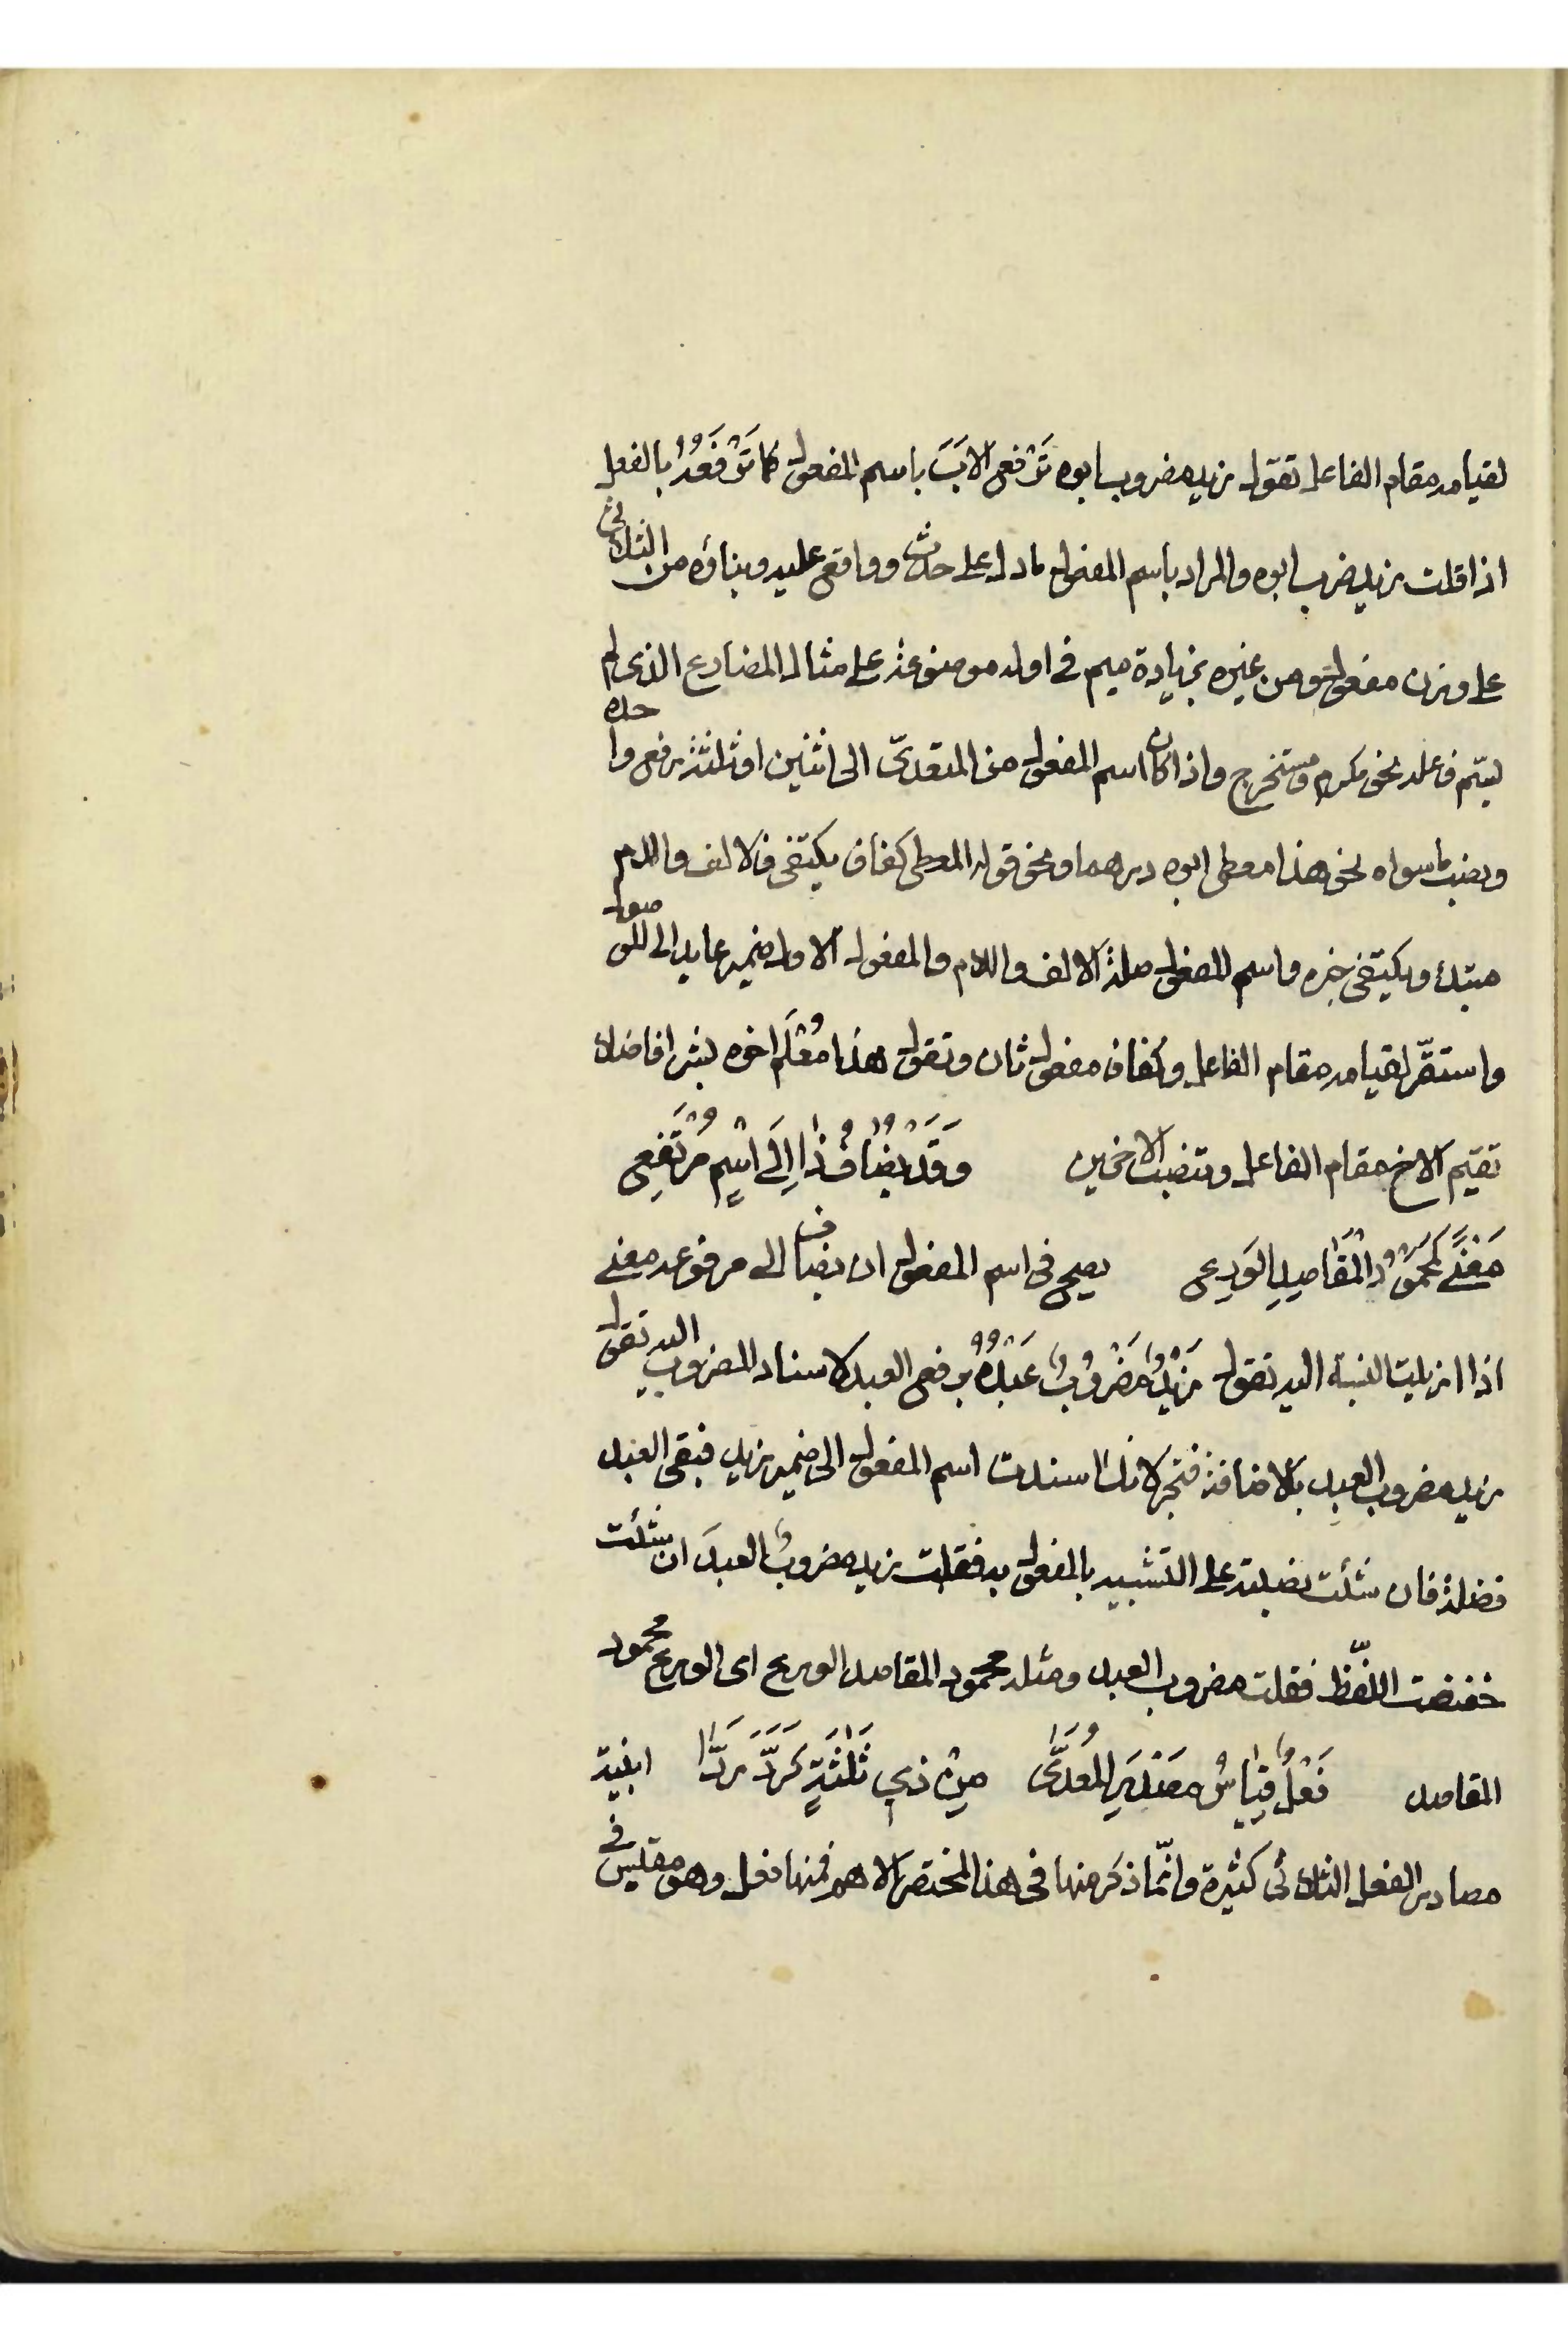 لقيامه مقام الفاعل تقول زيد مضروب ابوه تَرْفع الابَ باسم المفعول كما تَرْفَعُهُ بالفعل
اذا قلت زيد ضرب ابوه والمراد باسم المفعول ما دل على حدث وواقع عليه وبناؤه من الثلاثى
على وزن مفعول ومن غيره بزيادة ميم فى اوله موضوعة على مثال المضارع الذى لم
يسمّ فاعله نحو مكرم ومستخرج واذا كان اسم المفعول من المتعدىّ الى اثنين او ثلثة رفع واحده
ونصب ما سواه نحو هذا معطى ابوه درهما ونحو قوله المعطى كفافا يكتفى فالالف واللام
مبتدء ويكتفى خبره واسم المفعول صلة الالف واللام والمفعول الاول ضمير عايد الى الموصول
واستتر لقيامه مقام الفاعل وكفافا مفعول ثان وتقول هذا مُعْلَم اخوه بشرا فاضلا
تقيم الاخ مقام الفاعل وتنصب الاخرين وَقَدْ يُضَافُ ذَا إِلَى اسْمٍ مُرْتَفِعِ
مَعْنًى كَمَحْمُوْدِ الْمَقَاصِدِ الوَرِعِ يصح فى اسم المفعول ان يضاف الى مرفوعه معنى
اذا ازيلت النسبة اليه تقول زَيْدٌ مَضْرُوبٌ عَبْدُهُ برفع العبد لاسناد المضروب اليه تقول
زيد مضروب العبدِ بالاضافة فتجر لانك اسندت اسم المفعول الى ضمير زيد فبقى العبد
فضلة فان شئت نصبته على التشبيه بالمفعول به فقلت زيد مضروبٌ العبدَ ان شئت
خفضت اللفظ فقلت مضروب العبد ومثله محمود المقاصد الورع اى الورع محمود
المقاصد فَعْلٌ قِيَاسُ مَصْدَرِ المُعَدَّى مِنْ ذِي ثَلٰثَةٍ كَرَدَّ رَدَّا ابنية
مصادر الفعل الثلاثى كثيرة وانّما ذكر منها فى هذا المختصر الاهم فمنها فعل وهو مقيس فى